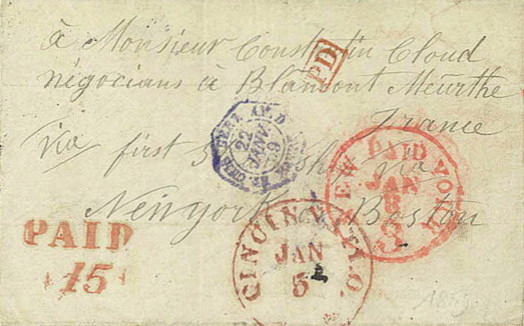 à Monsieur Constantin Cloud
négocians à Blamont Meurthe
France
via first
via
Newyork or Boston
PD
22
JANV.
59
NEW YORK
PAID
JAN
3
PAID
15
CINCINNATI O.
JAN
5
1859